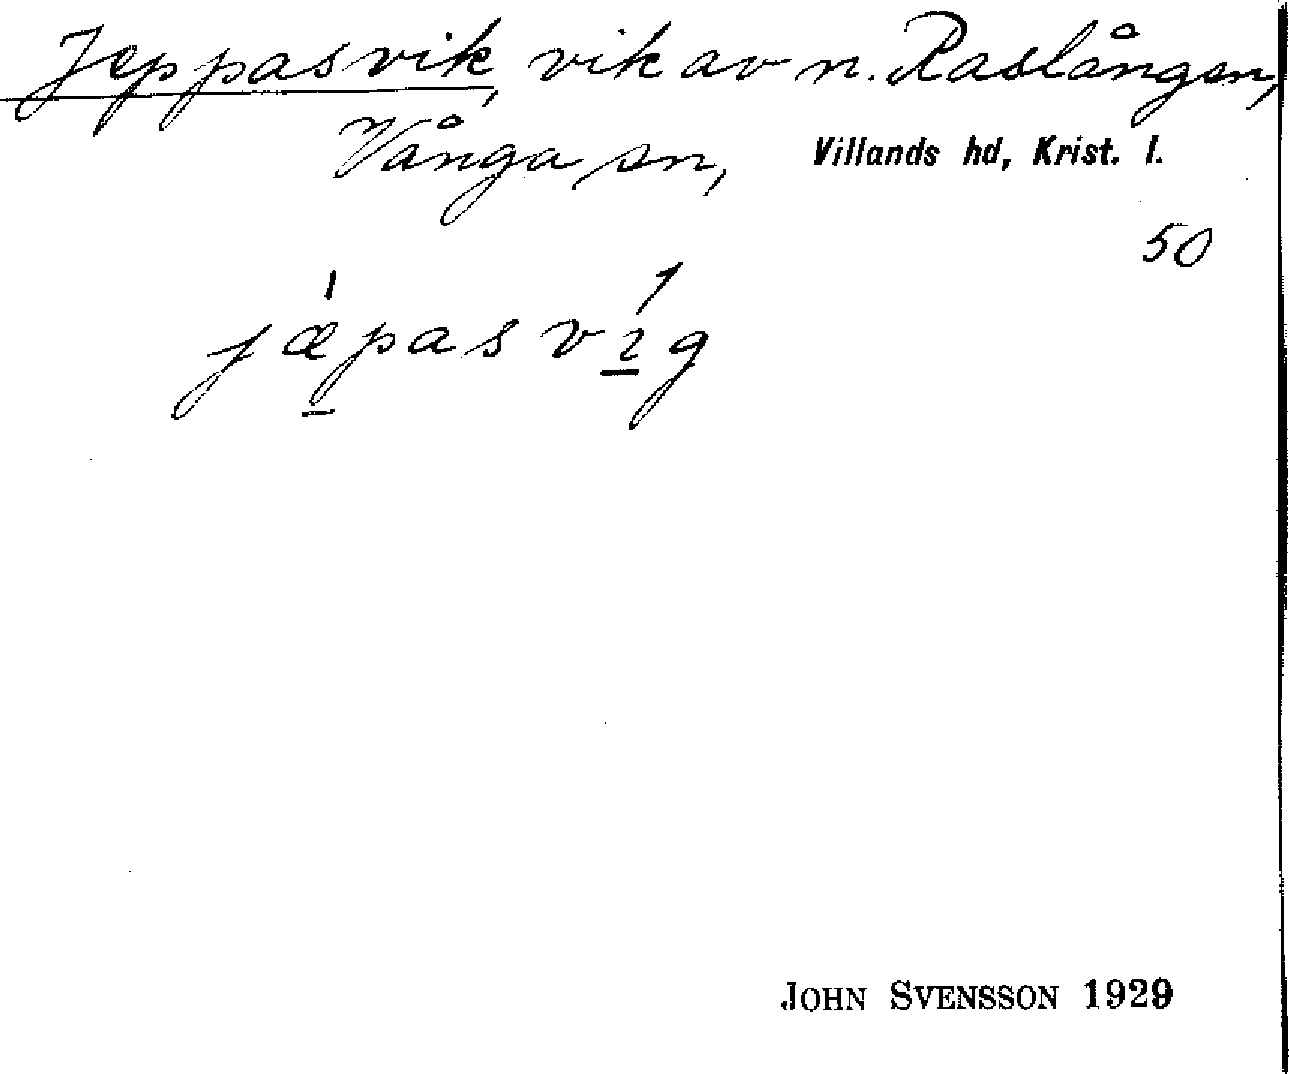 Jeppasvik, vik av n. Raslången,
Vånga sn, Villands hd, Krist. l.
50
jæ̍pasvi̍g
JOHN SVENSSON 1929